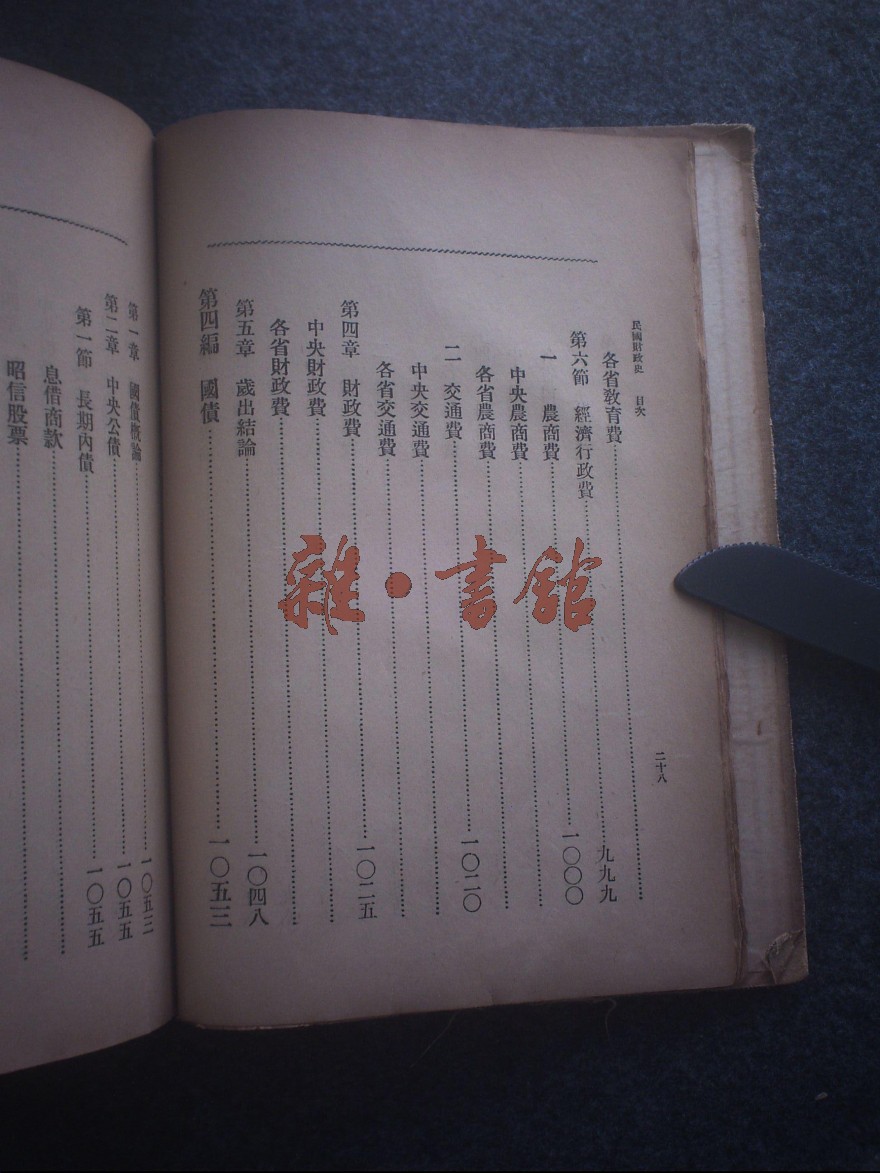 民國財政史 目次 二十八
各省教育費……
第六節 經濟行政費……九九九
一 農商費……一〇〇〇
中央農商費……
各省農商費……
二 交通費……一〇二〇
中央交通費……
各省交通費……
第四章 財政費……一〇二五
中央財政費……
各省財政費……
第五章 歲出結論……一〇四八
第四編 國債……一〇五三
第一章 國債概論……一〇五三
第二章 中央公債……一〇五五
第一節 長期內債……一〇五五
息借商款……
昭信股票……
雜·書館